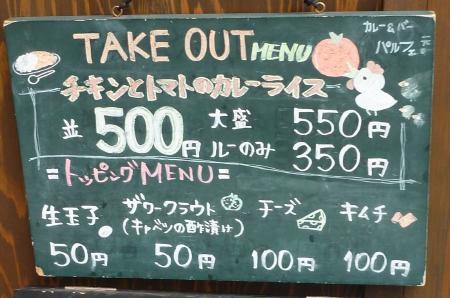 TAKE OUT MENU
カレー&バー
パルフェ
チキンとトマトのカレーライス
並 500円 大盛 550円
ルーのみ 350円
=トッピングMENU=
生玉子 ザワークラウト チーズ キムチ
(キャベツの酢漬け)
50円 50円 100円 100円